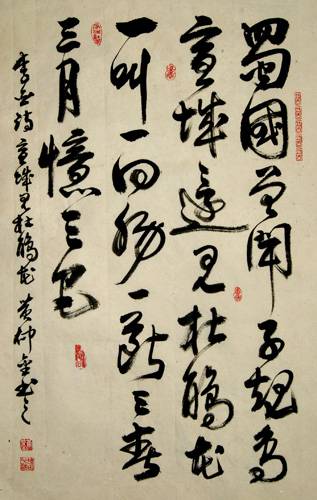 蜀國曾聞子規鳥
宣城還見杜鵑花
一叫一回腸一斷三春
三月憶三巴
李白詩宣城見杜鵑花 黄仲金书之